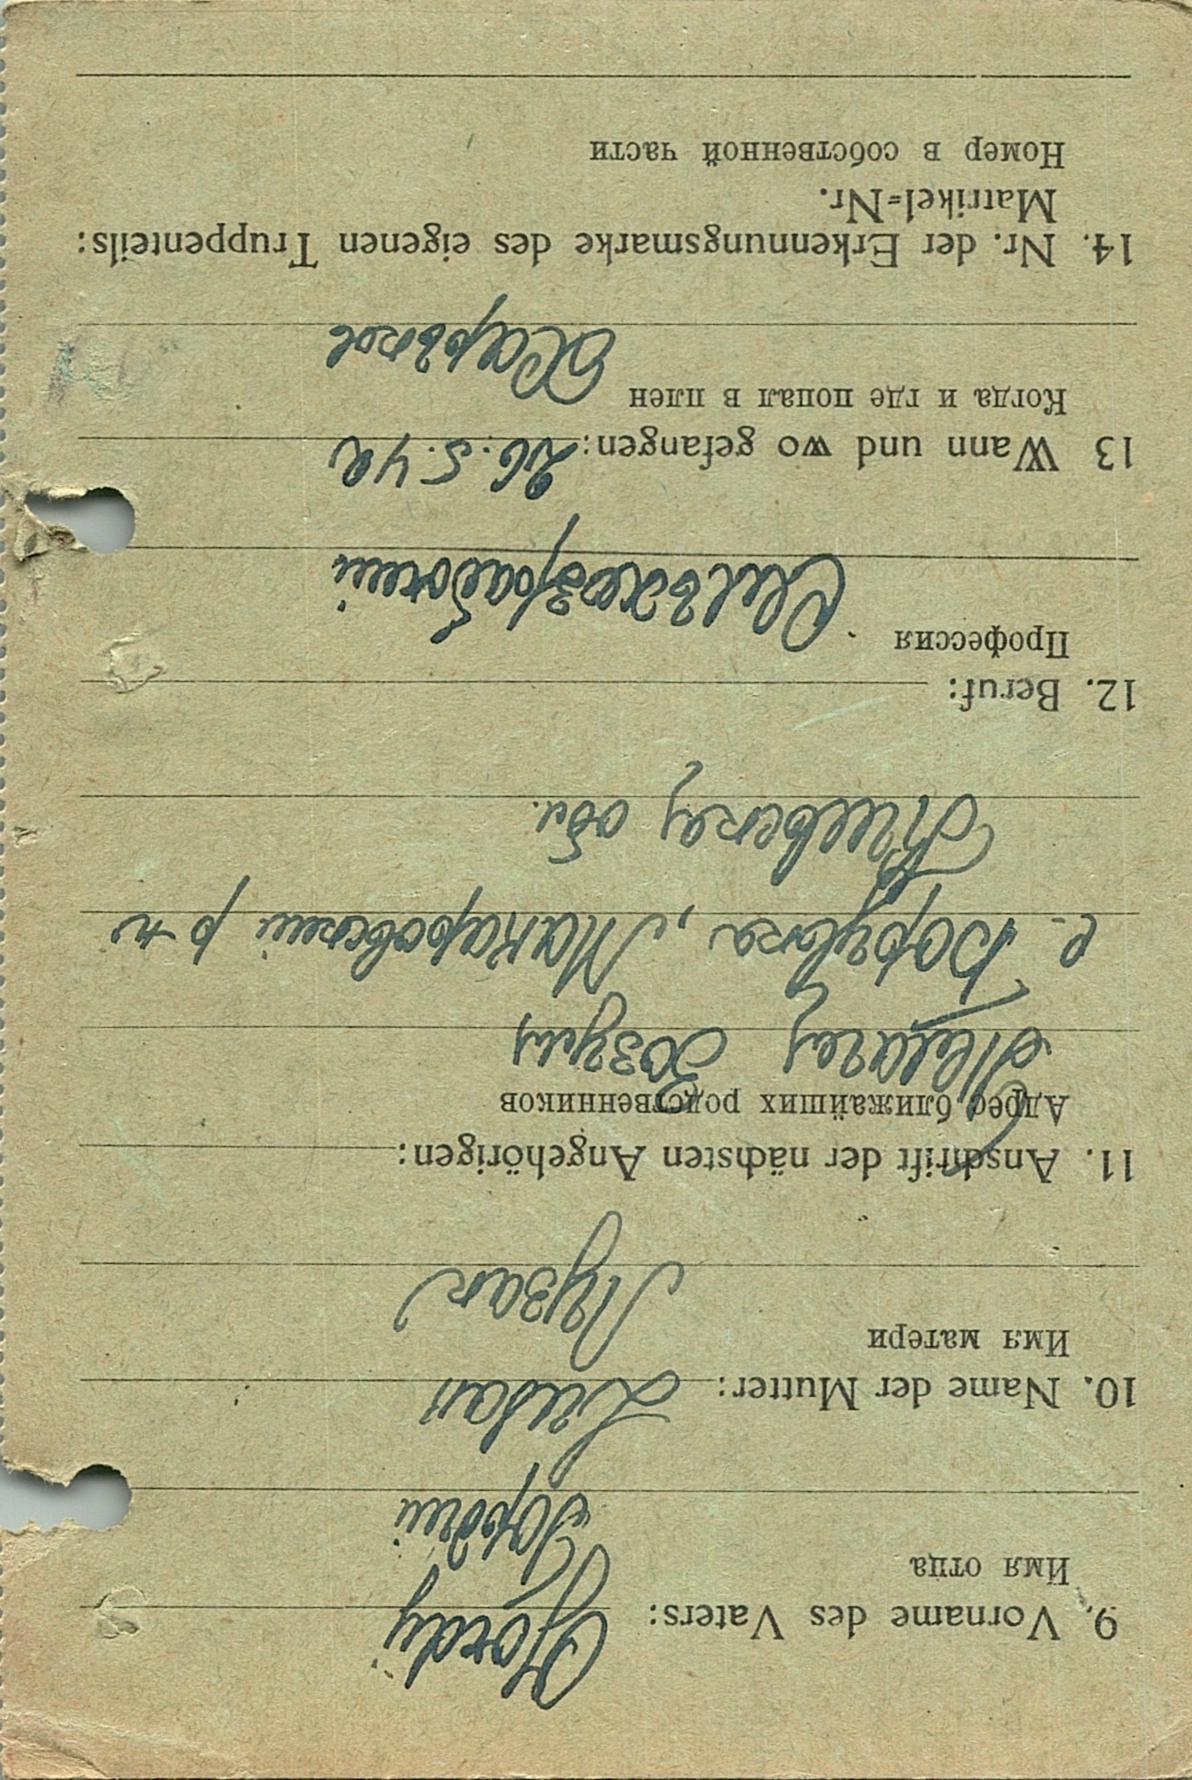 9. Vorname des Vaters: Gordij
Имя отца
Гордий
10. Name der Mutter: Lusan
Имя матери
Лузан
11. Anschrift der nächsten Angehörigen:
Адрес ближайших родственников
Пелагея
с. Борувка, Макаровский р-н
Киевская обл.
12. Beruf:
Профессия
Сельхозрабочий
13 Wann und wo gefangen: 26.5.42
Когда и где попал в плен
Харьков
14. Nr. der Erkennungsmarke des eigenen Truppenteils:
Matrikel=Nr.
Номер в собственной части